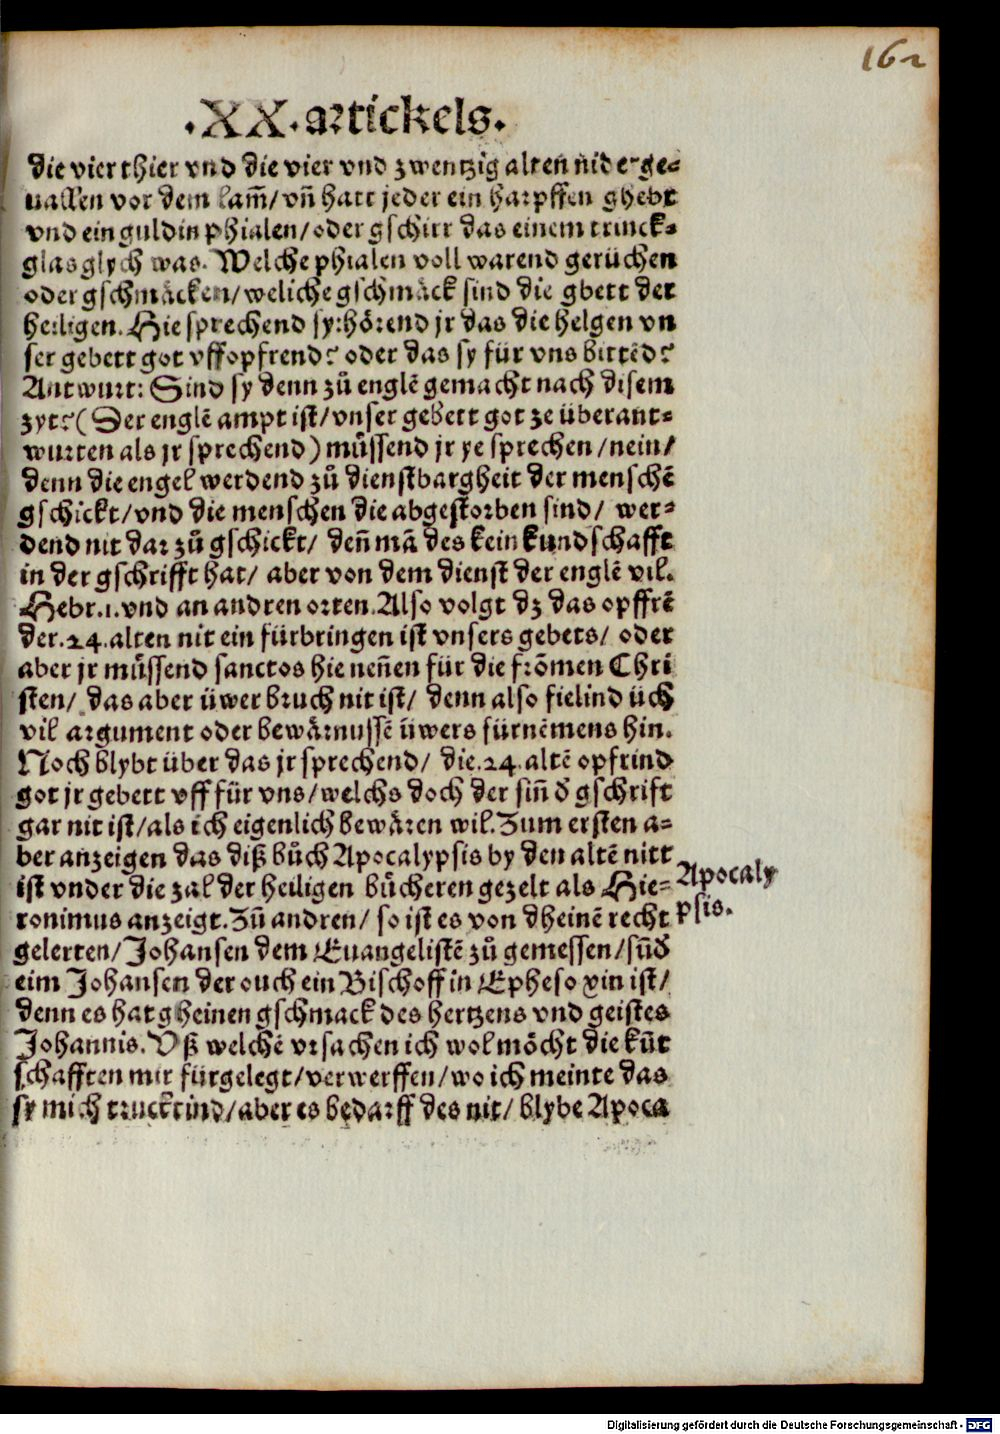 162
.XX.artickels.
die vier thier vnd die vier vnd zwentzig alten niderge-
uallen vor dem lam̄/ vn̄ hatt jeder ein harpffen ghebt
vnd ein guldin phialen/ oder gschirr das einem trinck-
glas glych was. Welche phialen voll warend gerüchen
oder gschmäcken/ weliche gschmäck sind die gbett der
heiligen. Hie sprechend sy: hörend jr das die helgen vn
ser gebett got vffopfrend? oder das sy für vns bittēd?
Antwurt: Sind sy denn zů englē gemacht nach disem
zyt? (Der englē ampt ist/ vnser gebett got ze überant-
wurten als jr sprechend) müssend jr ye sprechen/ nein/
denn die engel werdend zů dienstbargheit der menschē
gschickt/ vnd die menschen die abgestorben sind/ wer-
dend nit dar zů gschickt/ den̄ mā des kein kundschafft
in der gschrifft hat/ aber von dem dienst der englē vil.
Hebr.1. vnd an andren orten. Also volgt dz das opffrē
der .24. alten nit ein fürbringen ist vnsers gebets/ oder
aber jr müssend sanctos hie nen̄en für die frōmen Chri
sten/ das aber üwer bruch nit ist/ denn also fielind üch
vil argument oder bewärnussē üwers fürnēmens hin.
Noch blybt über das jr sprechend/ die .24. altē opfrind
got jr gebett vff für vns/ welchs doch der sin̄ d̄ gschrift
gar nit ist/ als ich eigenlich bewären wil. Zum ersten a-
ber anzeigen das diß bůch Apocalypsis by den altē nitt
ist vnder die zal der heiligen bücheren gezelt als Hie-
ronimus anzeigt. Zū andren/ so ist es von dheinē recht
gelerten/ Johansen dem Euangelistē zů gemessen/ sūd̄
eim Johansen der ouch ein Bischoff in Epheso xin ist/
denn es hat gheinen gschmack des hertzens vnd geistes
Johannis. Vß welchē vrsachen ich wol möcht die kūt
schafften mir fürgelegt/ verwerffen/ wo ich meinte das
sy mich trucktind/ aber es bedarff des nit/ blybe Apoca
Apocaly
psis.
Digitalisierung gefördert durch die Deutsche Forschungsgemeinschaft - DFG